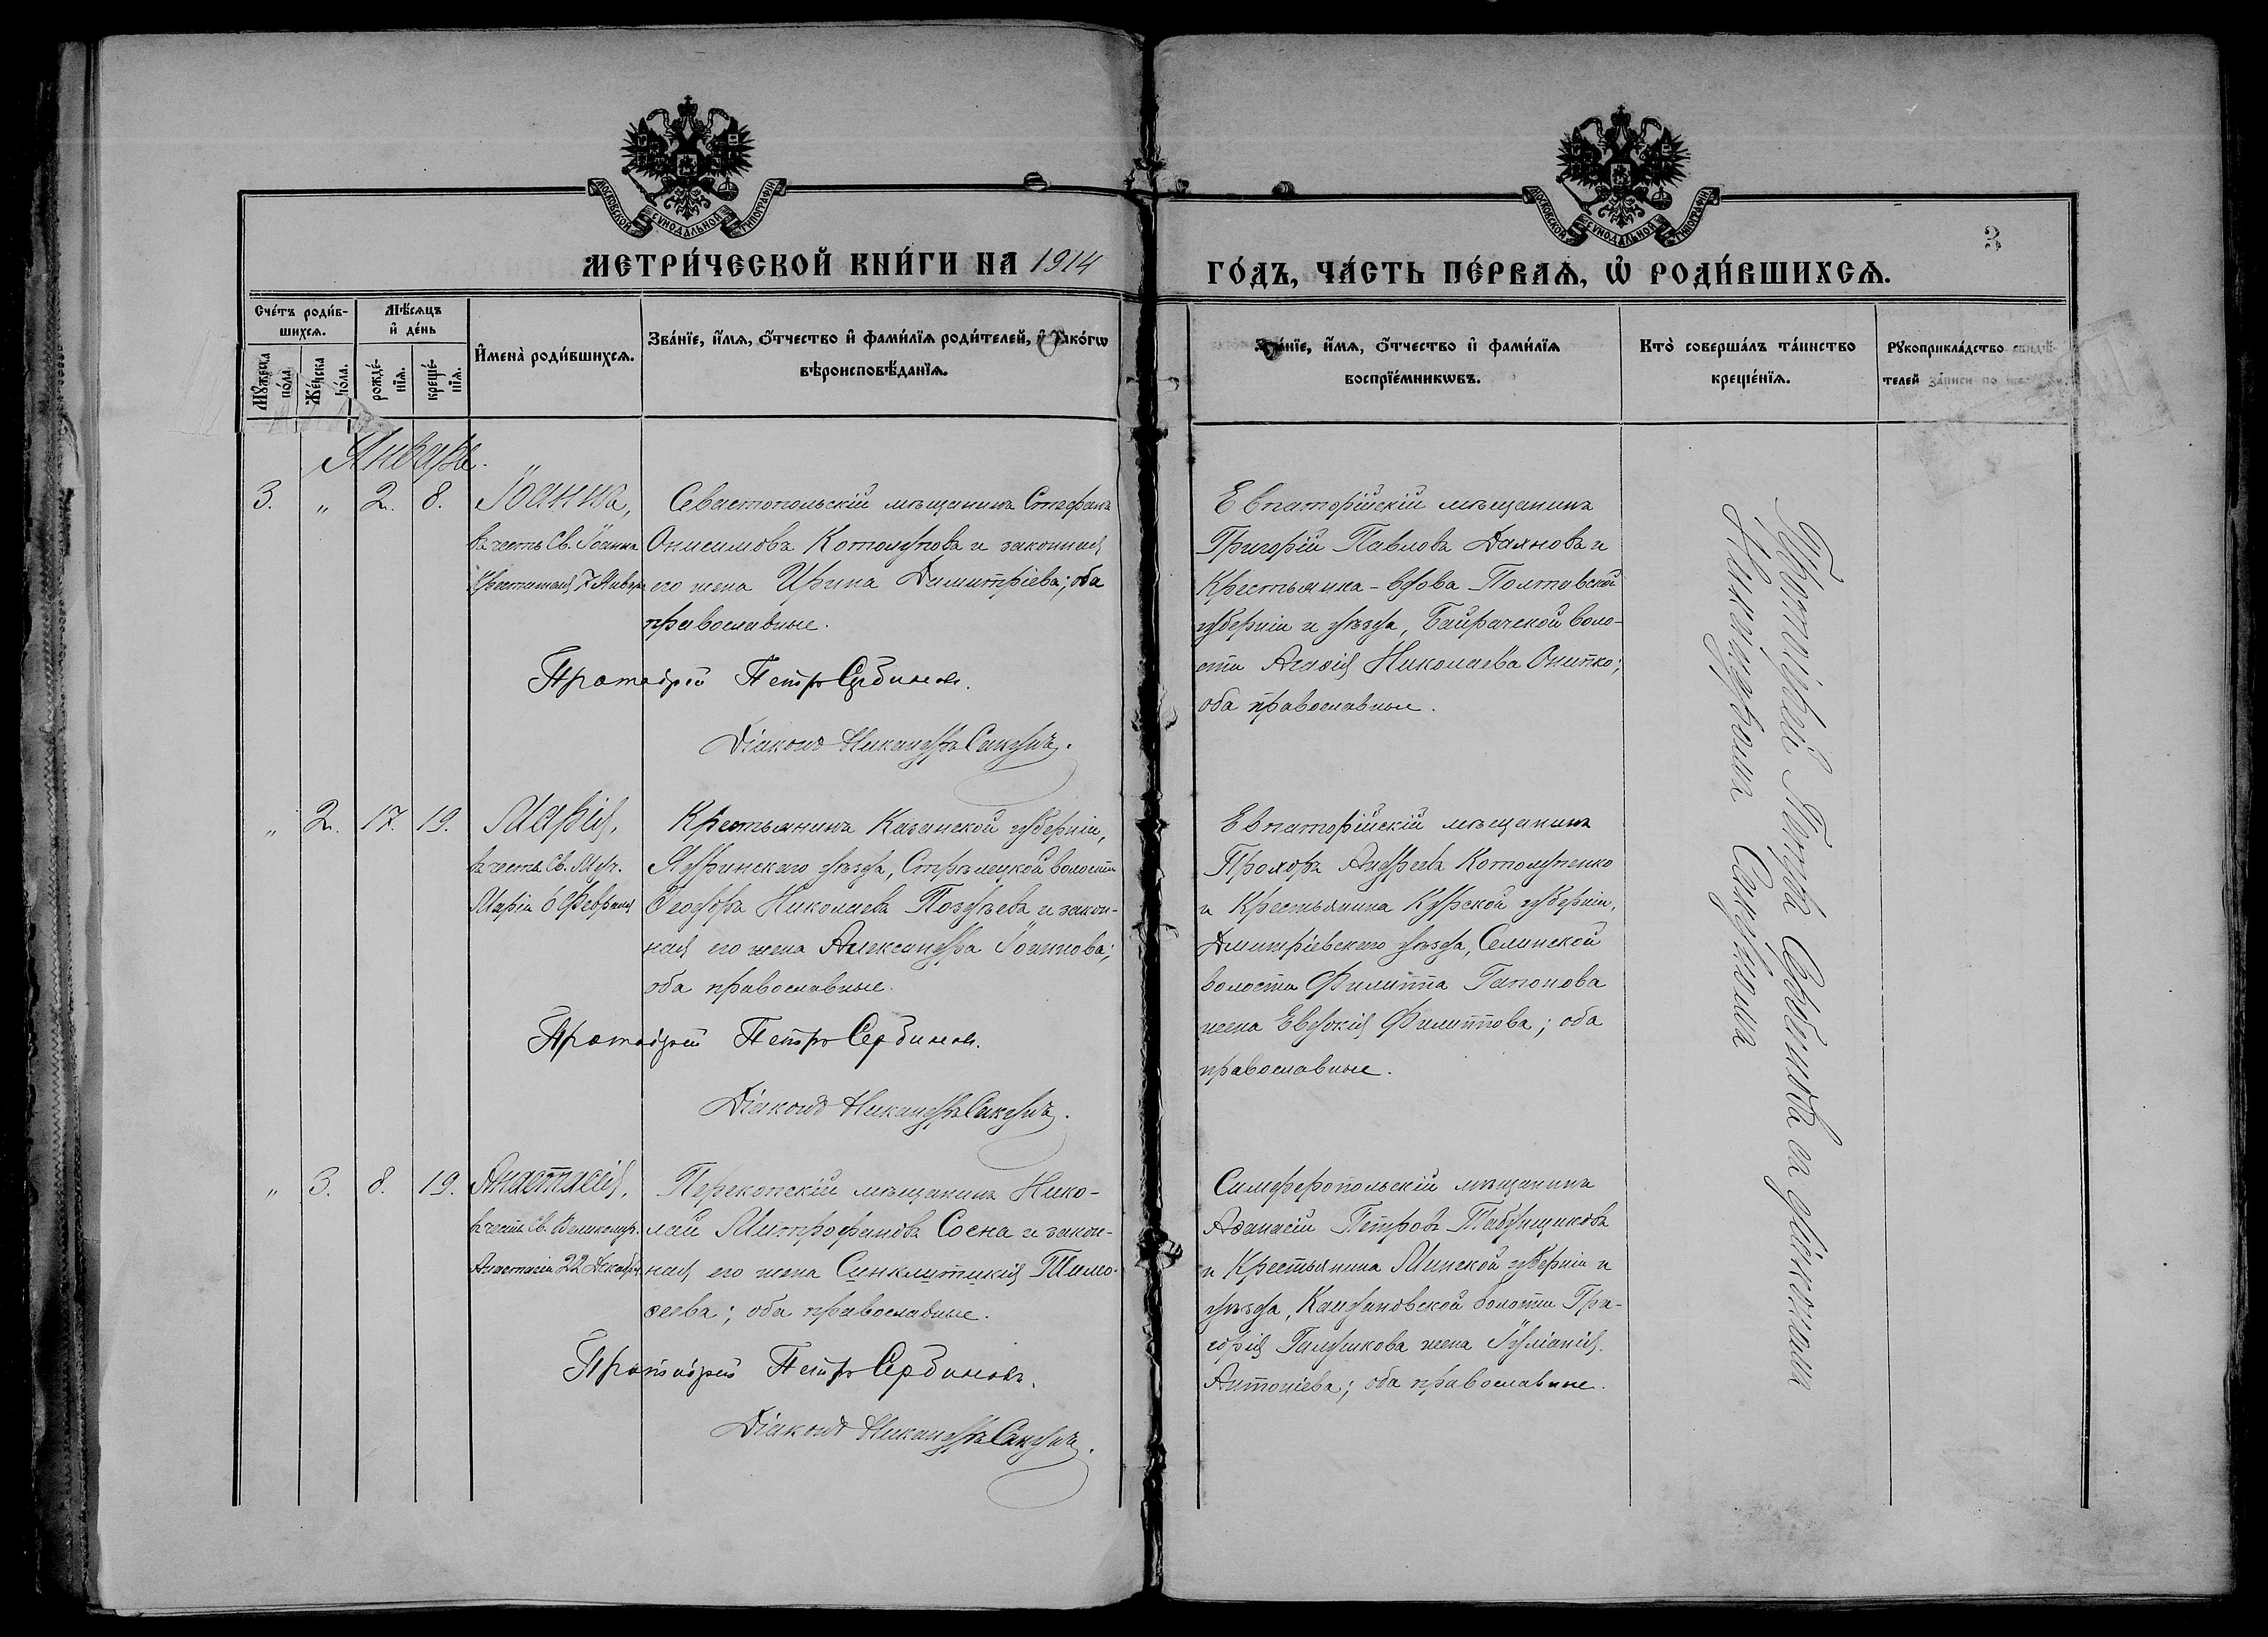 МОСКОВСКОЙ СѴНОДАЛЬНОЙ ТИПОГРАФІИ
МОСКОВСКОЙ СѴНОДАЛЬНОЙ ТИПОГРАФІИ
3
МЕТРИ́ЧЕСКОЙ КНИ́ГИ НА 1914
ГО́ДЪ, ЧА́СТЬ ПЕ́РВАѦ, Ѡ҆ РОДИ́ВШИХСѦ.
Сче́тъ роди́в-
шихсѧ.
Мꙋ́жеска по́ла
Же́нска по́ла.
Мѣ́сѧцъ
и҆ де́нь
рожде́-
нїѧ.
креще́-
нїѧ.
И҆мена̀ роди́вшихсѧ.
Зва́нїе, и҆́мѧ, ѻ҆́тчество и҆ фами́лїѧ роди́телей, и҆ како́гѡ
вѣроисповѣ́данїѧ.
Зва́нїе, и҆́мѧ, ѻ҆́тчество и҆ фами́лїѧ
воспрїе́мникѡвъ.
Кто̀ соверша́лъ та́инство
креще́нїѧ.
Рꙋкоприкла́дство свидѣ́-
телей за́писи по
Январь.
3. " 2. 8. Іоаннъ,
въ честь Св. Іоанна
Крестителя 7 Января
Севастопольскій мѣщанинъ Стефанъ
Онисимовъ Котолуповъ и законная
его жена Ирина Димитріева; оба
православные.
Протоіерей Петръ Сербиновъ.
Діаконъ Никандръ Сакунъ.
Евпаторійскій мѣщанинъ
Григорій Павловъ Даяновъ и
Крестьянка-вдова Полтавской
губерніи и уѣзда, Байракской воло-
сти Агафія Николаева Онипко;
оба православные.
" 2. 17. 19. Марія,
въ честь Св. Муч.
Маріи 6 Февраля
Крестьянинъ Казанской губерніи,
Ядринскаго уѣзда, Стрѣлецкой волости
Ѳеодоръ Николаевъ Поздѣевъ и закон-
ная его жена Александра Іоаннова;
оба православные.
Протоіерей Петръ Сербиновъ.
Діаконъ Никандръ Сакунъ.
Евпаторійскій мѣщанинъ
Прохоръ Андреевъ Котолупенко
и Крестьянина Курской губерніи,
Дмитріевскаго уѣзда, Селинской
волости Филиппа Гапонова
жена Евдокія Филиппова; оба
православные.
" 3. 8. 19. Анастасія,
въ честь Св. Великомуч.
Анастасіи 22 Декабря
Перекопскій мѣщанинъ Нико-
лай Митрофановъ Сосна и закон-
ная его жена Синклитикія Тимо-
ѳеева; оба православные.
Протоіерей Петръ Сербиновъ.
Діаконъ Никандръ Сакунъ.
Симферопольскій мѣщанинъ
Аѳанасій Петровъ Табунщиковъ
и Крестьянина Минской губерніи и
уѣзда, Кайдановской волости Гри-
горія жена Іуліанія
Антоніева; оба православные.
Протоіерей Петръ Сербиновъ съ діакономъ
Никандромъ Сакуномъ